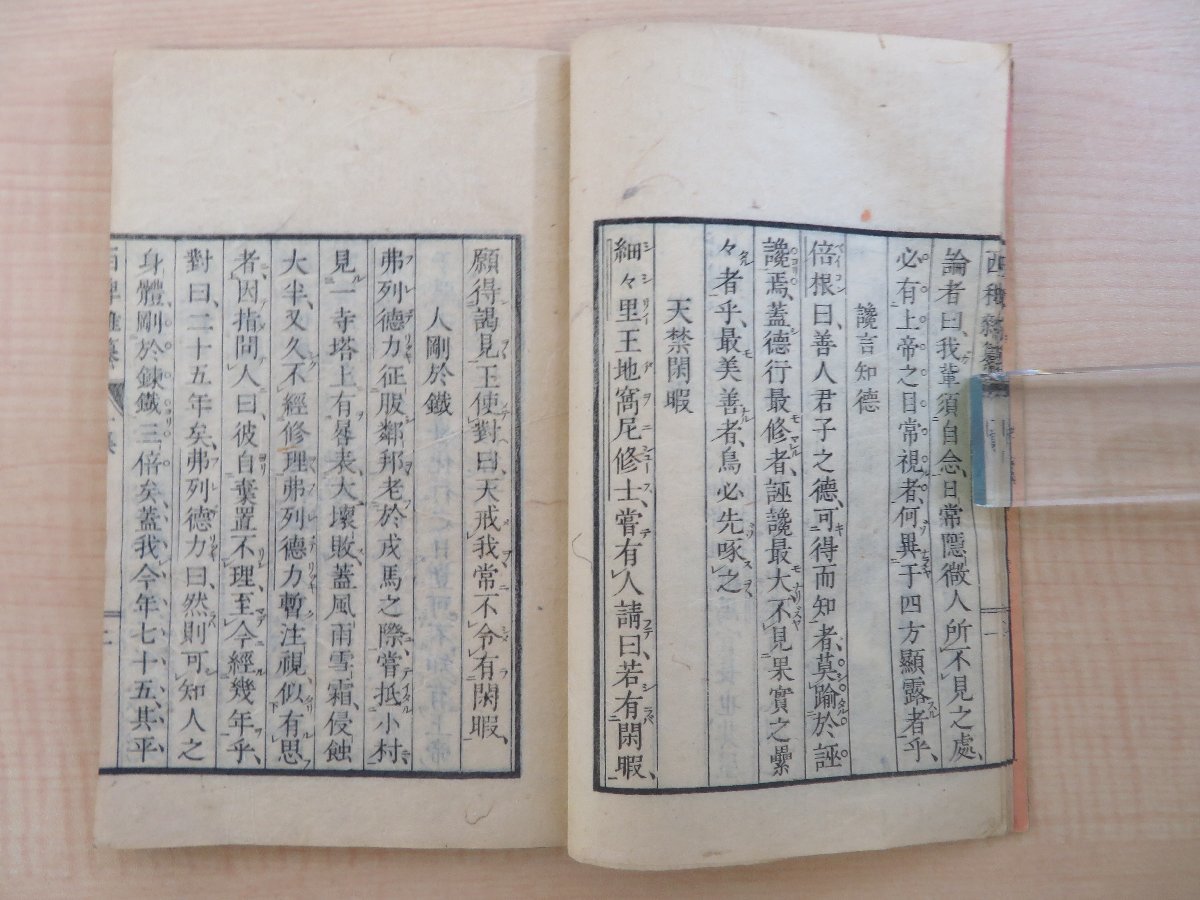 論者曰、我輩須自念、日常隱微人所不見之處、
必有上帝之目常視者、何異于四方顯露者乎、
讒言知德
倍根曰、善人君子之德、可得而知者、莫踰於誣
讒焉、蓋德行最修者、誣讒最大、不見果實之纍
々者乎、最美善者、鳥必先啄之
天禁閑暇
細々里王地窩尼修士、嘗有人請曰、若有閑暇、
願得謁見、王使對曰、天戒我常不令有閑暇、
人剛於鐵
弗列德力征服鄰邦、老於戎馬之際、嘗抵小村
見一寺塔上有晷表、大壞敗、蓋風雨雪霜、侵蝕
大半、又久不經修理、弗列德力暫注視、似有思
者、因指問人曰、彼自棄置不理、至今經幾年乎、
對曰、二十五年矣、弗列德力曰、然則可知人之
身體、剛於鍊鐵三倍矣、蓋我今年七十五、其平